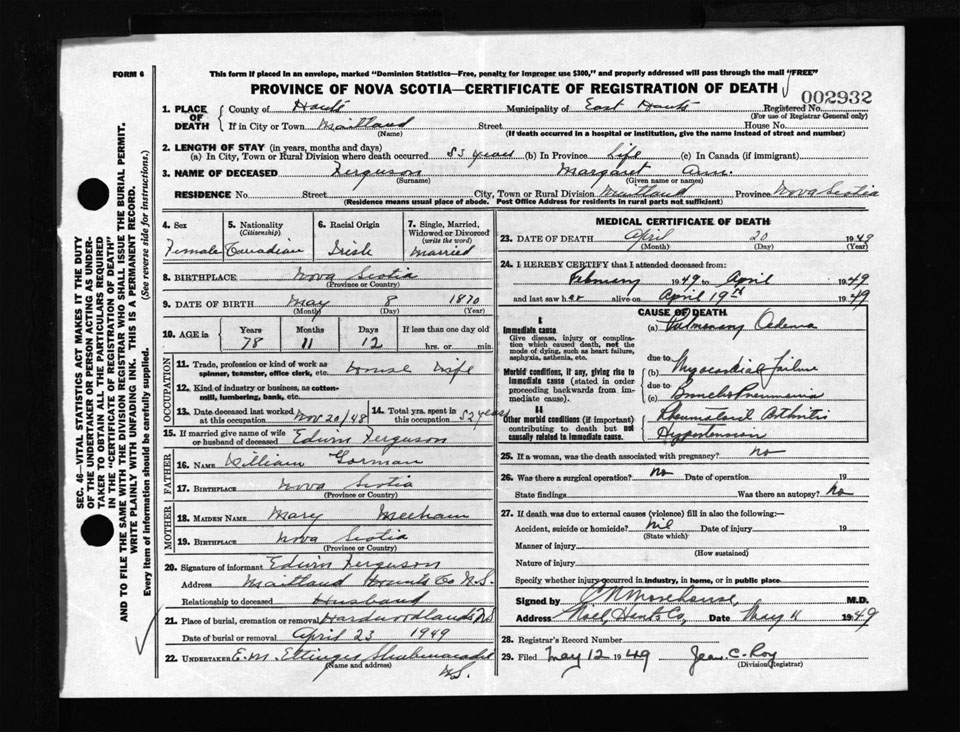 FORM 6
This form if placed in an envelope, marked "Dominion Statistics—Free, penalty for improper use $300," and properly addressed will pass through the mail "FREE"
PROVINCE OF NOVA SCOTIA—CERTIFICATE OF REGISTRATION OF DEATH
002932
1. PLACE OF DEATH
County of Hants Municipality of East Hants Registered No.
(For use of Registrar General only)
If in City or Town Maitland Street House No.
(Name) (If death occurred in a hospital or institution, give the name instead of street and number)
2. LENGTH OF STAY (in years, months and days)
(a) In City, Town or Rural Division where death occurred 53 years (b) In Province Life (c) In Canada (if immigrant)
3. NAME OF DECEASED Ferguson Margaret Ann.
(Surname) (Given name or names)
RESIDENCE No. Street City, Town or Rural Division Maitland Province Nova Scotia
(Residence means usual place of abode. Post Office Address for residents in rural parts not sufficient)
4. Sex 5. Nationality (Citizenship) 6. Racial Origin 7. Single, Married, Widowed or Divorced (write the word)
Female Canadian Irish Married
8. BIRTHPLACE Nova Scotia
(Province or Country)
9. DATE OF BIRTH May 8 1870
(Month) (Day) (Year)
10. AGE in Years Months Days If less than one day old
78 11 12 hrs. or min.
OCCUPATION
11. Trade, profession or kind of work as spinner, teamster, office clerk, etc. House Wife
12. Kind of industry or business, as cotton-mill, lumbering, bank, etc.
13. Date deceased last worked at this occupation Nov 20/48 14. Total yrs. spent in this occupation 52 years
15. If married give name of wife or husband of deceased Edwin Ferguson
FATHER
16. NAME William Gorman
17. BIRTHPLACE Nova Scotia
(Province or Country)
MOTHER
18. MAIDEN NAME Mary Meehan
19. BIRTHPLACE Nova Scotia
(Province or Country)
20. Signature of informant Edwin Ferguson
Address Maitland Hants Co N.S.
Relationship to deceased Husband
21. Place of burial, cremation or removal Hardwoodlands N.S
Date of burial or removal April 23 1949
22. UNDERTAKER E.M. Ettinger Shubenacadie
(Name and address) N.S.
MEDICAL CERTIFICATE OF DEATH
23. DATE OF DEATH April 20 1949
(Month) (Day) (Year)
24. I HEREBY CERTIFY that I attended deceased from:
February 1949 to April 1949
and last saw her alive on April 19th 1949
CAUSE OF DEATH
I
Immediate cause. (a) Pulmonary Oedema
Give disease, injury or complication which caused death, not the mode of dying, such as heart failure, asphyxia, asthenia, etc.
due to
Morbid conditions, if any, giving rise to immediate cause (stated in order proceeding backwards from immediate). (b) Myocardial Failure
due to
(c) Broncho Pneumonia
II
Other morbid conditions (if important) contributing to death but not causally related to immediate cause. Rheumatoid Arthritis
Hypertension
25. If a woman, was the death associated with pregnancy? no
26. Was there a surgical operation? No Date of operation 19
State findings Was there an autopsy? No
27. If death was due to external causes (violence) fill in also the following:—
Accident, suicide or homicide? nil Date of injury 19
(State which)
Manner of injury
(How sustained)
Nature of injury
Specify whether injury occurred in industry, in home, or in public place
Signed by Morehouse, M.D.
Address Noel, Hants Co, Date May 11 1949
28. Registrar's Record Number
29. Filed May 12 1949 Jean C. Roy
(Division Registrar)
SEC. 46—VITAL STATISTICS ACT MAKES IT THE DUTY
OF THE UNDERTAKER OR PERSON ACTING AS UNDER-
TAKER TO OBTAIN ALL THE PARTICULARS REQUIRED
IN THE "CERTIFICATE OF REGISTRATION OF DEATH"
AND TO FILE THE SAME WITH THE DIVISION REGISTRAR WHO SHALL ISSUE THE BURIAL PERMIT.
WRITE PLAINLY WITH UNFADING INK. THIS IS A PERMANENT RECORD.
Every item of information should be carefully supplied. (See reverse side for instructions.)